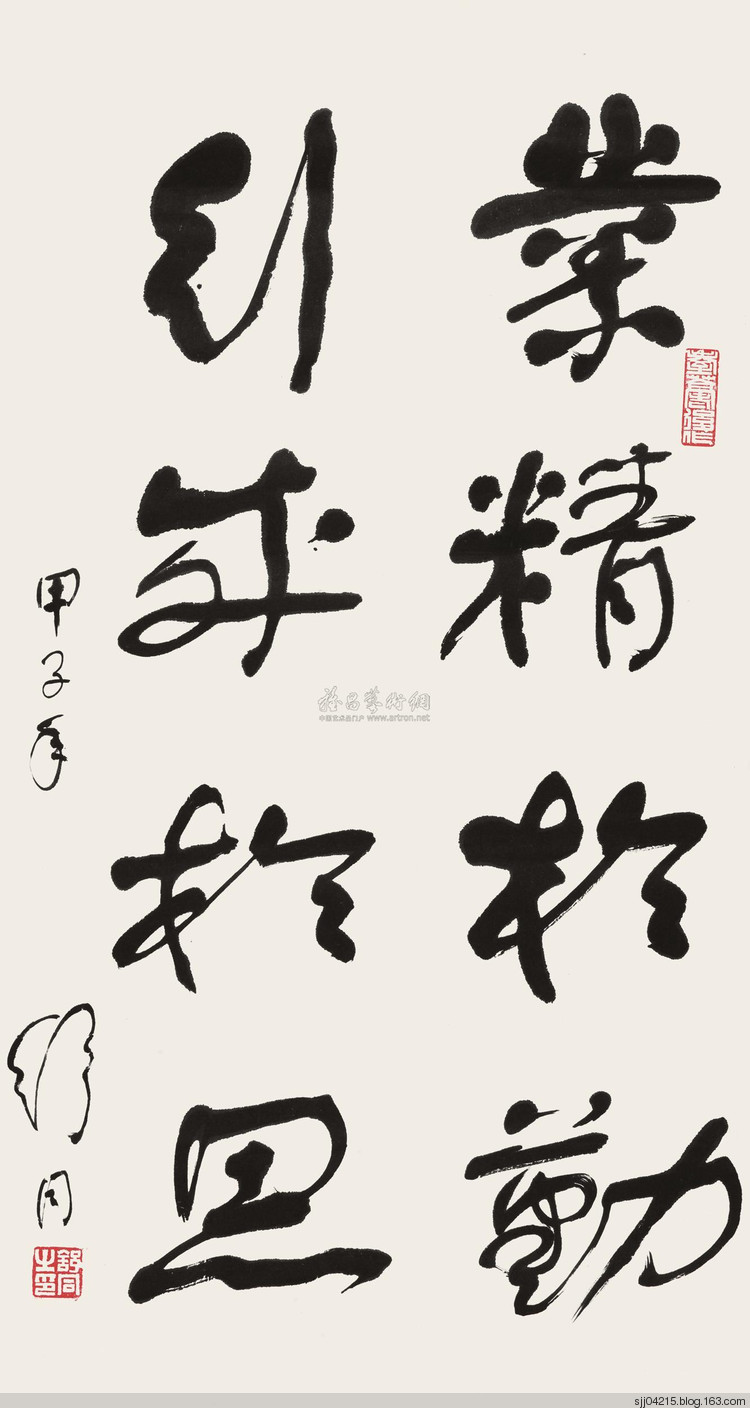 業精於勤
行成於思
甲子年
舒同
舒同之印
雅昌藝術網
中国艺术品门户 www.artron.net
sjj04215.blog.163.com